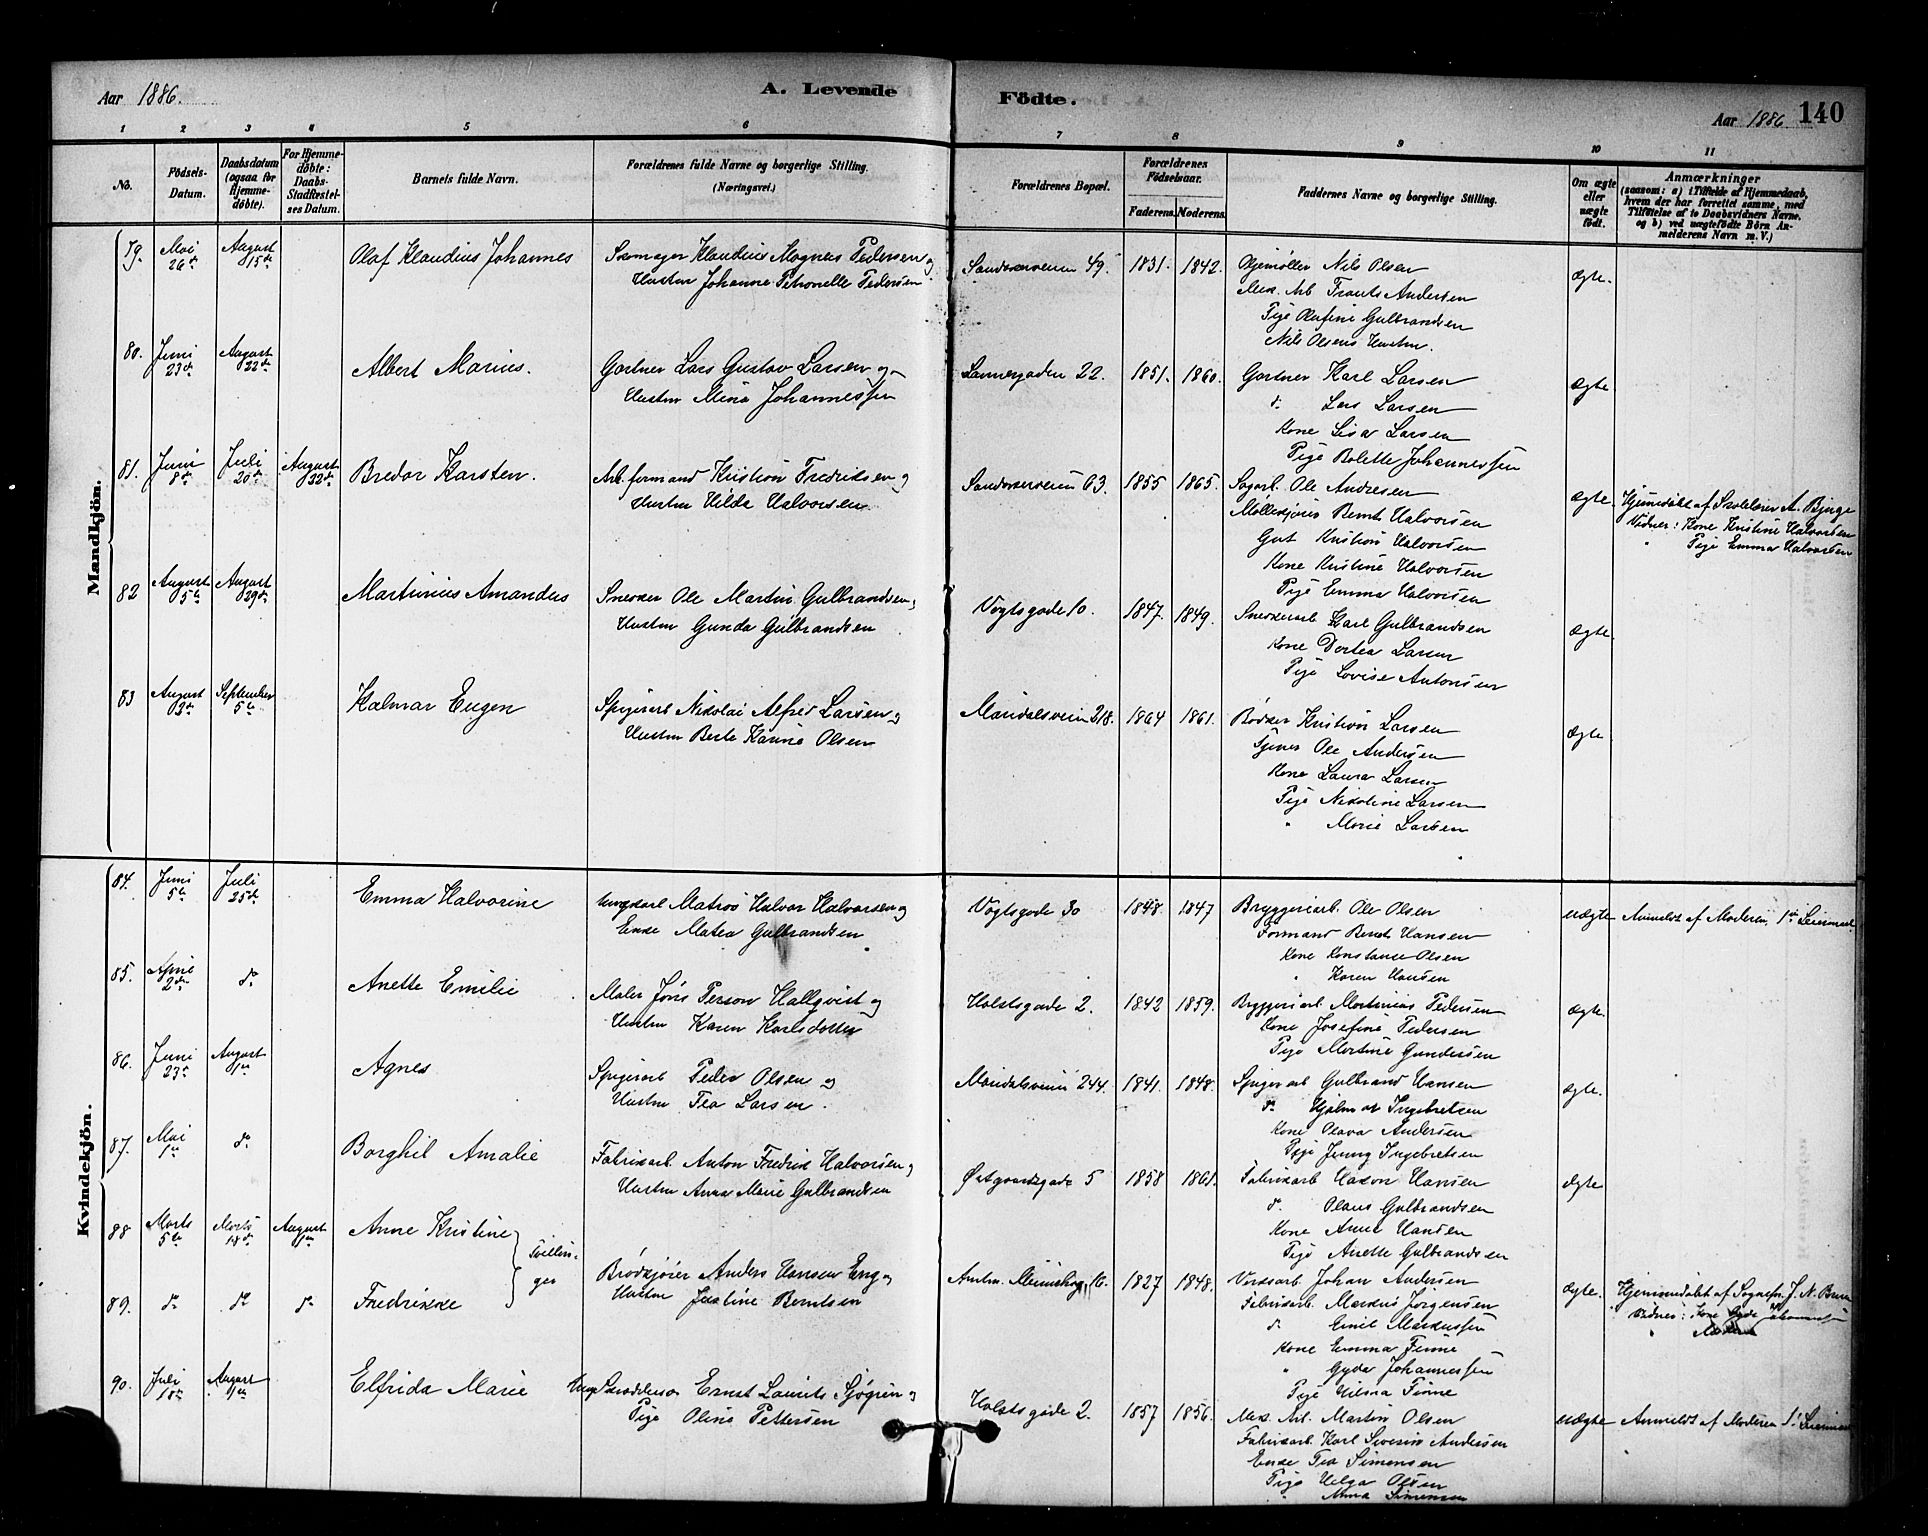 Aar 1886.
A. Levende
Födte.
Aar 1886
140
1 2 3 4 5 6 7 8 9 10 11
No.
Födsels-
Datum.
Daabsdatum
(ogsaa for
Hjemme-
döbte).
For Hjemme-
döbte:
Daabs-
Stadfæstel-
ses Datum.
Barnets fulde Navn.
Forældrenes fulde Navne og borgerlige Stilling.
(Næringsvei.)
Forældrenes Bopæl.
Forældrenes
Födselsaar.
Faderens. Moderens.
Faddernes Navne og borgerlige Stilling.
Om ægte
eller
uægte
födt.
Anmærkninger
(saasom: a) i Tilfælde af Hjemmedaab,
hvem der har forrettet samme, med
Tilföielse af to Daabsvidners Navne.
og b) ved uægtefödte Börn An-
melderens Navn m. V.)
Mandkjön.
79. Mai 26de
August 15de
Olaf Klaudius Johannes
Klaudius Magnus Pedersen og
Hustru Johanne Petronelle Pedersen
Sandakerveien 49. 1831. 1842.
Oljemøller Nils Olsen
Mek. Arb Frants Andersen
Pige Olufine Gulbrandsen
Nils Olsens Hustru.
ægte.
80. Juni 23de
August 22de
Albert Marius.
Gartner Lars Gustav Larsen og
Hustru Mina Johannessen
Sannergaden 22. 1851. 1860.
Gartner Karl Larsen
do Lars Larsen
Kone Lisa Larsen
Pige Bolette Johannessen
ægte
81. Juni 8de
Juli 20de
August 22de
Bredor Karsten.
Arb. formand Kristian Fredriksen og
Hustru Hilda Halvorsen
Sandakerveien 63. 1855 1865.
Sagarb. Ole Andresen
Møllekjører Bernt Halvorsen
Gut Kristian Halvorsen
Kone Kristine Halvorsen
Pige Emma Halvorsen
ægte
Hjemmedøbt af Skolelærer A. Bjerge
Vidner: Kone Kristine Halvorsen
" Pige Emma Halvorsen
82 August 5te
August 29de
Martinius Amandus
Snekker Ole Martin Gulbrandsen og
Hustru Gunda Gulbrandsen
Vogtsgade 10. 1847. 1849.
Snekkerarb Karl Gulbrandsen
Kone Dortea Larsen
Pige Lovise Antonsen
ægte
83 August 3de
September 5te
Kalmar Eugen
Spigerarb Nikolai Alfred Larsen og
Hustru Berte Karine Olsen
Maridalsveien 218. 1864 1861.
Bødker Kristian Larsen
Tjener Ole Andersen
Kone Laura Larsen
Pige Nikoline Larsen
" Marie Larsen
ægte
Kvindekjön.
84. Juni 5te
Juli 25de
Emma Halvorine
Ungkarl Matros Halvor Halvorsen og
Enke Matea Gulbrandsen
Vogtsgade 30 1848. 1847
Bryggeriarb. Ole Olsen
Formand Bernt Hansen
Kone Konstance Olsen
" Karen Hansen
uægte
Anmeldt af Moderen. 1ste Leiermaal
85. April 2den
do
Anette Emilie
Maler Jöns Person Hallqvist og
Hustru Karen Karlsdotter
Holstsgade 2. 1842 1859.
Bryggeriarb. Martinius Pedersen
Kone Josefine Pedersen
Pige Martine Gundersen
ægte.
86. Juni 23de
August 1ste
Agnes
Spigerarb Peder Olsen og
Hustru Tea Larsen.
Maridalsveien 244. 1841. 1848.
Spigerarb Gulbrand Hansen
do Hjalmar Ingebretsen
Kone Olava Andersen
Pige Jenny Ingebretsen
ægte.
87. Mai 1ste
do
Borghil Amalie
Fabrikarb. Anton Fredrik Halvorsen og
Hustru Anna Marie Gulbrandsen
Østgaardsgade 5 1858 1861.
Fabrikarb Hakon Hansen
do Olaus Gulbrandsen
Kone Anna Hansen
Pige Anette Gulbrandsen
ægte
88 Marts 5te
Marts 18de
August 1ste
Anne Kristine
Tvillin-
ger
Brødkjører Anders Hansen Eng og
Hustru Justine Berntsen
16. 1827 1848.
Verksarb. Johan Andersen
Fabrikarb. Markus Jörgensen
do Emil Markussen
Kone Emma Finne
" Gyda Johannessen
Pige Hilma Finne
ægte.
Hjemmedøbt af Sognepr. J. N. Bruun
Vidner: Kone Gyda Johannessen
89. do do do
Fredrikke
90. Juli 18de
August 1ste
Elfrida Marie
Ungk Skrædder Ernst Laurits Sjøgren og
Pige Olina Pettersen
Holstsgade 2. 1857 1856.
Mek. Arb. Martin Olsen
Fabrikarb. Karl Severin Andersen
Enke Tea Simensen
Pige Helga Olsen
" Anna Simensen
uægte
Anmeldt af Moderen 1ste Leiermaal